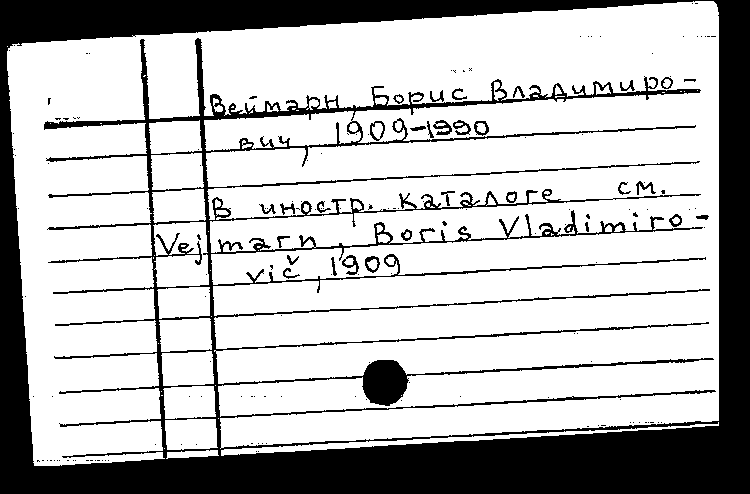 Веймарн, Борис Владимиро-
вич, 1909-1990
В иностр. каталоге см.
Vejmarn, Boris Vladimiro-
vič, 1909